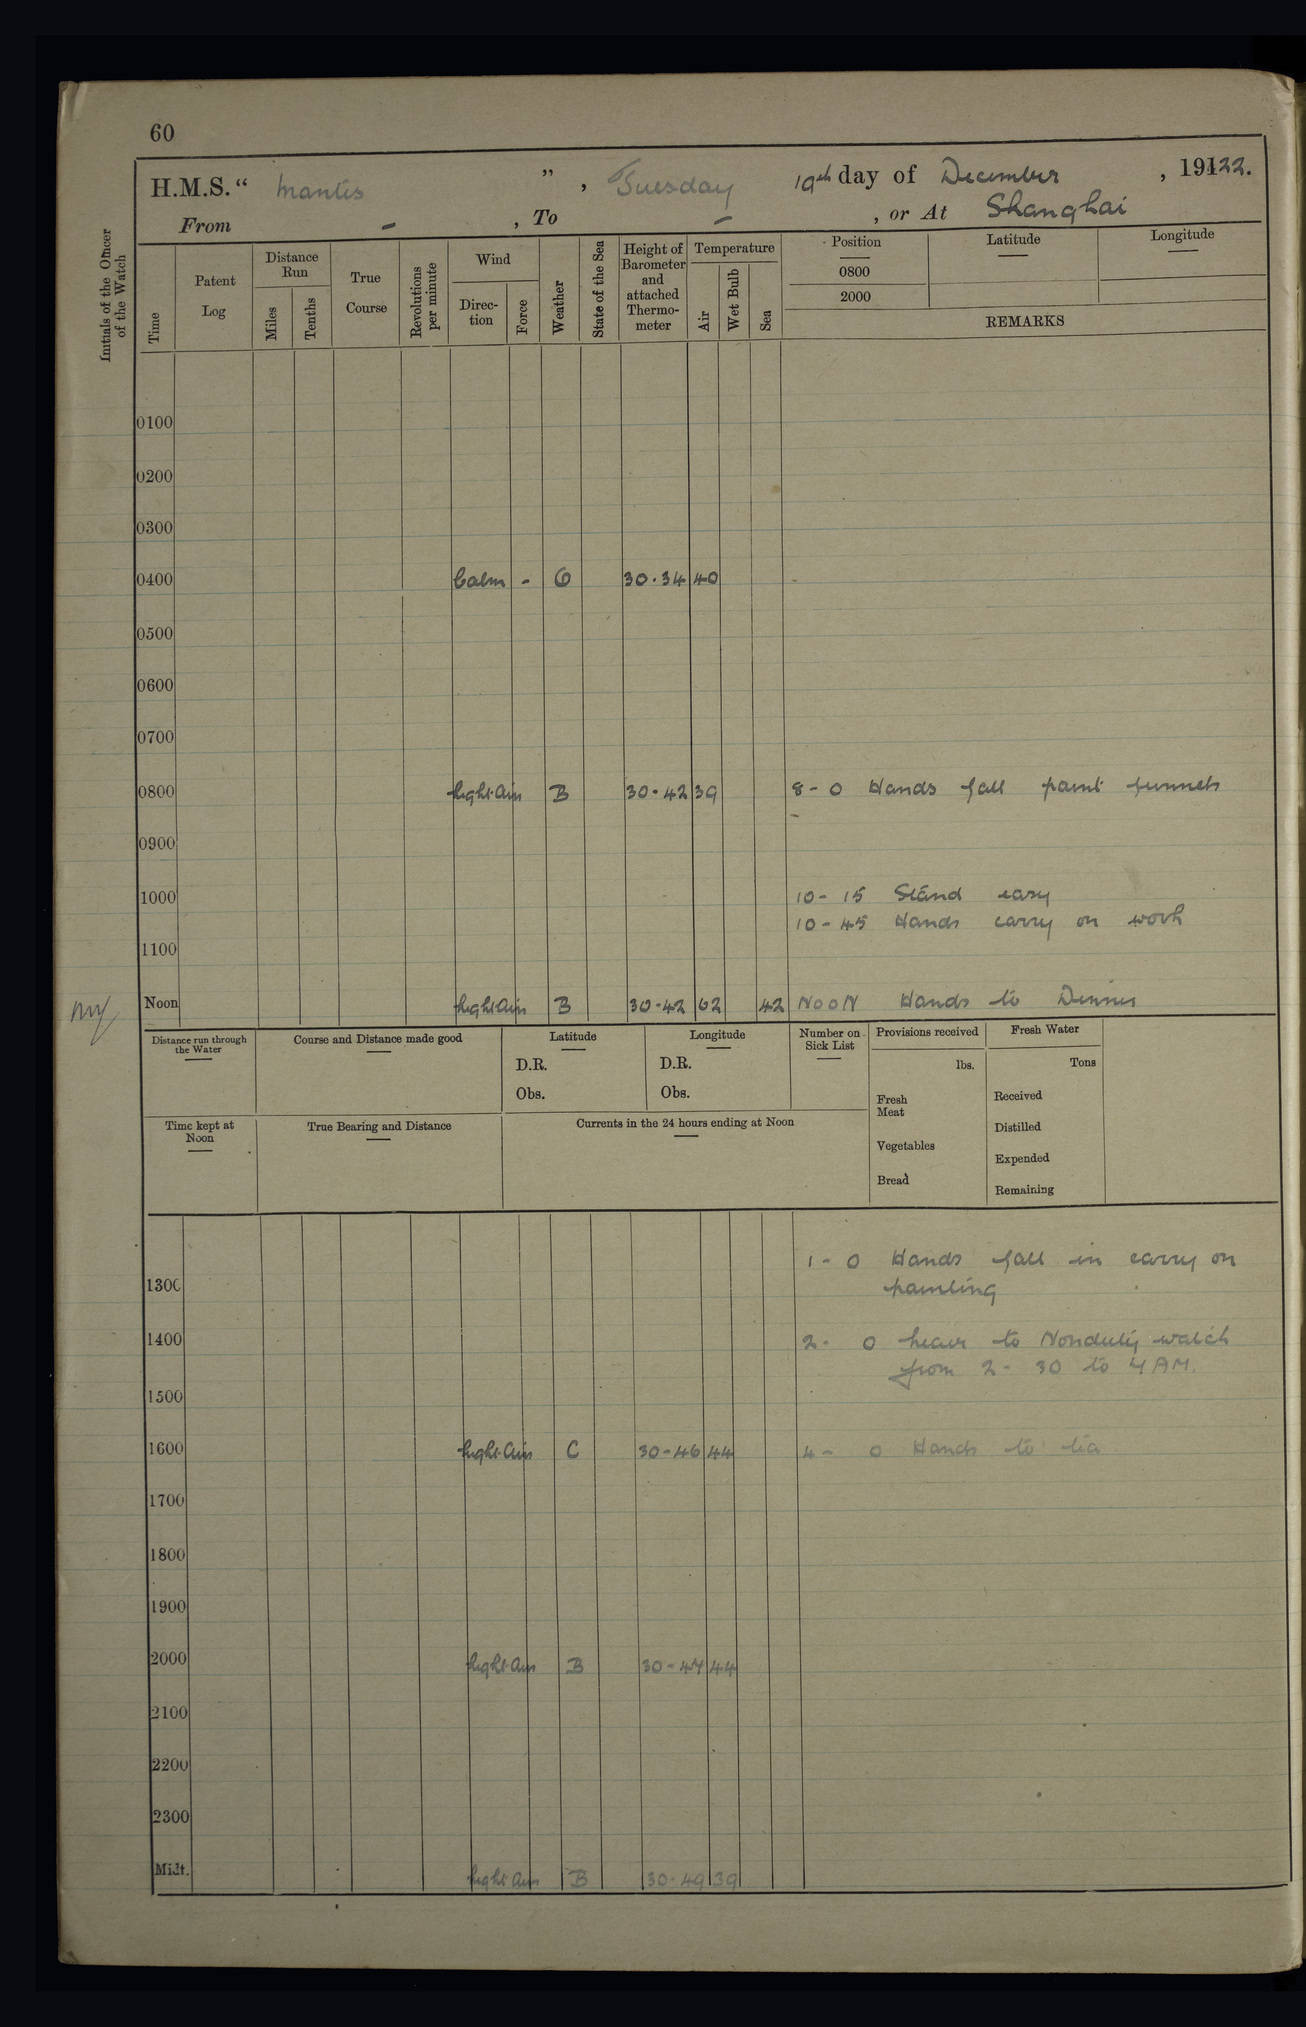 60
H.M.S. “ Mantis ” , Tuesday 19th day of December , 19122.
From - , To - , or At Shanghai
Initials of the Officer of the Watch
Time
Patent Log
Distance Run
Miles
Tenths
True Course
Revolutions per minute
Wind
Direc-tion
Force
Weather
State of the Sea
Height of Barometer and attached Thermo-meter
Temperature
Air
Wet Bulb
Sea
Position
0800
2000
Latitude
Longitude
REMARKS
0100
0200
0300
0400 Calm - O 30.34 40
0500
0600
0700
0800 Light Airs B 30.42 39 8 - 0 Hands fall paint funnels
0900
1000 10 - 15 Stand easy
10 - 45 Hands carry on work
1100
Noon Light Airs B 30-42 62 42 NOON Hands to Dinner
Distance run through the Water
Course and Distance made good
Latitude
D.R.
Obs.
Longitude
D.R.
Obs.
Number on Sick List
Provisions received
lbs.
Fresh Meat
Vegetables
Bread
Fresh Water
Tons
Received
Distilled
Expended
Remaining
Time kept at Noon
True Bearing and Distance
Currents in the 24 hours ending at Noon
1 - 0 Hands fall in carry on
1300 painting
1400 2 - 0 leave to Nonduty watch
from 2 - 30 to 7 AM.
1500
1600 Light Airs C 30-46 44 4 - 0 Hands to tea
1700
1800
1900
2000 Light Airs B 30-47 44
2100
2200
2300
Midt. Light Airs B 30.49 39